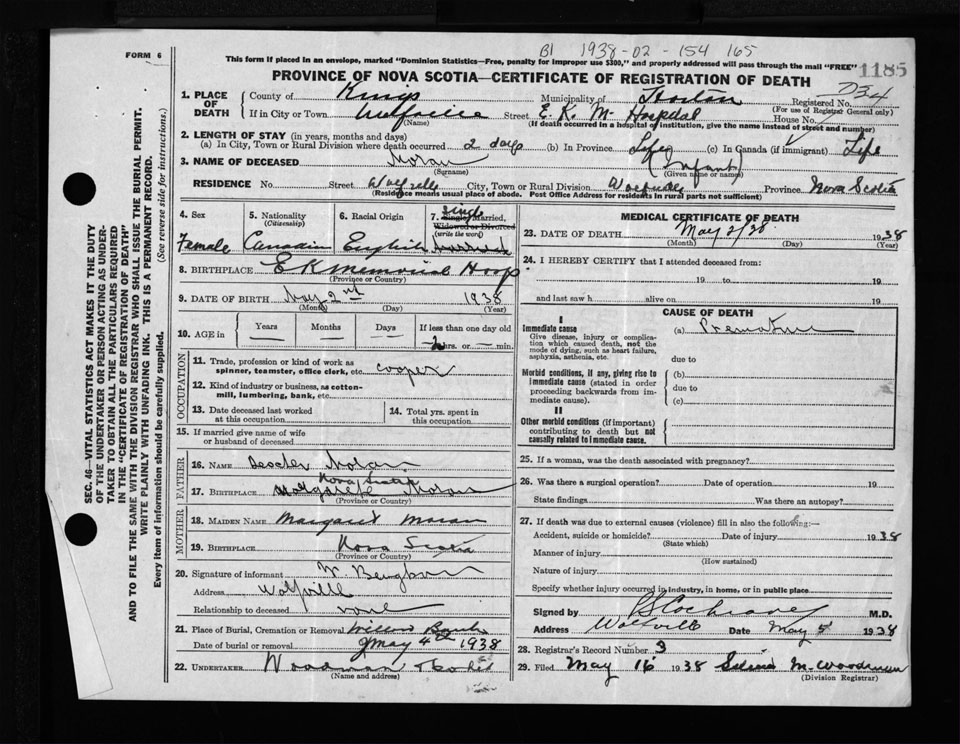 B1 1938-02-154 165
FORM 6
This form if placed in an envelope, marked "Dominion Statistics—Free, penalty for improper use $300," and properly addressed will pass through the mail "FREE"
1185
PROVINCE OF NOVA SCOTIA—CERTIFICATE OF REGISTRATION OF DEATH
1. PLACE OF DEATH
County of Kings Municipality of Horton Registered No.
(For use of Registrar General only)
If in City or Town Wolfville Street E. K. M. Hospital House No.
(Name) (If death occurred in a hospital or institution, give the name instead of street and number)
2. LENGTH OF STAY (in years, months and days)
(a) In City, Town or Rural Division where death occurred 2 days (b) In Province Life (c) In Canada (if immigrant) Life
3. NAME OF DECEASED (Infant)
(Surname) (Given name or names)
RESIDENCE No. Street Wolfville City, Town or Rural Division Wolfville Province Nova Scotia
(Residence means usual place of abode. Post Office Address for residents in rural parts not sufficient)
4. Sex 5. Nationality 6. Racial Origin 7. Single, Married,
(Citizenship) Widowed or Divorced
(write the word)
Female Canadian English
8. BIRTHPLACE E K Memorial Hosp
(Province or Country)
9. DATE OF BIRTH May 2nd 1938
(Month) (Day) (Year)
10. AGE in Years Months Days If less than one day old
hrs. or min.
OCCUPATION
11. Trade, profession or kind of work as
spinner, teamster, office clerk, etc. cooper
12. Kind of industry or business, as cotton-
mill, lumbering, bank, etc.
13. Date deceased last worked
at this occupation
14. Total yrs. spent in
this occupation
15. If married give name of wife
or husband of deceased
FATHER
16. NAME
17. BIRTHPLACE Nova Scotia
(Province or Country)
MOTHER
18. MAIDEN NAME Margaret
19. BIRTHPLACE Nova Scotia
(Province or Country)
20. Signature of informant
Address Wolfville
Relationship to deceased none
21. Place of Burial, Cremation or Removal Willow Bank
Date of burial or removal May 4th 1938
22. UNDERTAKER Woodman
(Name and address)
MEDICAL CERTIFICATE OF DEATH
23. DATE OF DEATH May 2/38 1938
(Month) (Day) (Year)
24. I HEREBY CERTIFY that I attended deceased from:
19 to 19
and last saw h alive on 19
CAUSE OF DEATH
I
Immediate cause (a) Premature
Give disease, injury or complica-
tion which caused death, not the
mode of dying, such as heart failure,
asphyxia, asthenia, etc.
due to
Morbid conditions, if any, giving rise to
immediate cause (stated in order
proceeding backwards from im-
mediate cause).
(b)
due to
(c)
II
Other morbid conditions (if important)
contributing to death but not
causally related to immediate cause.
25. If a woman, was the death associated with pregnancy?
26. Was there a surgical operation? Date of operation 19
State findings Was there an autopsy?
27. If death was due to external causes (violence) fill in also the following:—
Accident, suicide or homicide? Date of injury 1938
(State which)
Manner of injury
(How sustained)
Nature of injury
Specify whether injury occurred in industry, in home, or in public place
Signed by P S Cochrane M.D.
Address Wolfville Date May 5 1938
28. Registrar's Record Number 3
29. Filed May 16 1938 M. Woodman
(Division Registrar)
SEC. 46—VITAL STATISTICS ACT MAKES IT THE DUTY
OF THE UNDERTAKER OR PERSON ACTING AS UNDER-
TAKER TO OBTAIN ALL THE PARTICULARS REQUIRED
IN THE "CERTIFICATE OF REGISTRATION OF DEATH"
AND TO FILE THE SAME WITH THE DIVISION REGISTRAR WHO SHALL ISSUE THE BURIAL PERMIT.
WRITE PLAINLY WITH UNFADING INK. THIS IS A PERMANENT RECORD.
Every item of information should be carefully supplied. (See reverse side for instructions.)